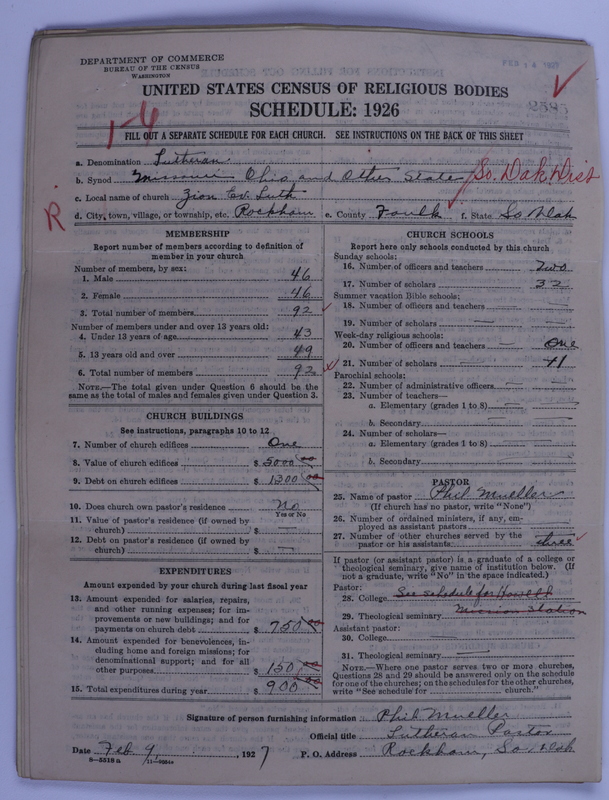 DEPARTMENT OF COMMERCE
BUREAU OF THE CENSUS
WASHINGTON
UNITED STATES CENSUS OF RELIGIOUS BODIES
SCHEDULE: 1926
2585
1-4
FILL OUT A SEPARATE SCHEDULE FOR EACH CHURCH. SEE INSTRUCTIONS ON THE BACK OF THIS SHEET
a. Denomination Lutheran
b. Synod Missouri Ohio and Other States So. Dak. Dist
c. Local name of church Zion Ev. Luth
R
d. City, town, village, or township, etc. Rockham e. County Faulk f. State So Dak
MEMBERSHIP
Report number of members according to definition of
member in your church
Number of members, by sex:
1. Male 46
2. Female 46
3. Total number of members 92
Number of members under and over 13 years old:
4. Under 13 years of age 43
5. 13 years old and over 49
6. Total number of members 92
NOTE.—The total given under Question 6 should be the
same as the total of males and females given under Question 3.
CHURCH BUILDINGS
See instructions, paragraphs 10 to 12
7. Number of church edifices One
8. Value of church edifices $ 5000 00
9. Debt on church edifices $ 1300 00
10. Does church own pastor's residence No
Yes or No
11. Value of pastor's residence (if owned by
church) $ —
12. Debt on pastor's residence (if owned by
church) $ —
EXPENDITURES
Amount expended by your church during last fiscal year
13. Amount expended for salaries, repairs,
and other running expenses; for im-
provements or new buildings; and for
payments on church debt $ 750 00
14. Amount expended for benevolences, in-
cluding home and foreign missions; for
denominational support; and for all
other purposes $ 150 00
15. Total expenditures during year $ 900 00
CHURCH SCHOOLS
Report here only schools conducted by this church
Sunday schools:
16. Number of officers and teachers Two
17. Number of scholars 32
Summer vacation Bible schools:
18. Number of officers and teachers —
19. Number of scholars —
Week-day religious schools:
20. Number of officers and teachers — One
21. Number of scholars — 41
Parochial schools:
22. Number of administrative officers —
23. Number of teachers—
a. Elementary (grades 1 to 8) —
b. Secondary —
24. Number of scholars—
a. Elementary (grades 1 to 8) —
b. Secondary —
PASTOR
25. Name of pastor Phil Mueller
(If church has no pastor, write "None")
26. Number of ordained ministers, if any, em-
ployed as assistant pastors —
27. Number of other churches served by the
pastor or his assistants three
If pastor (or assistant pastor) is a graduate of a college or
theological seminary, give name of institution below. (If
not a graduate, write "No" in the space indicated.)
Pastor:
28. College See schedule for Howell
29. Theological seminary Mission Station
Assistant pastor:
30. College
31. Theological seminary —
NOTE.—Where one pastor serves two or more churches,
Questions 28 and 29 should be answered only on the schedule
for one of the churches; on the schedules for the other churches,
write "See schedule for church."
Signature of person furnishing information Phil Mueller
Official title Lutheran Pastor
Date Feb 9, 1927 P. O. Address Rockham, So Dak
8—5518a 11—9054a